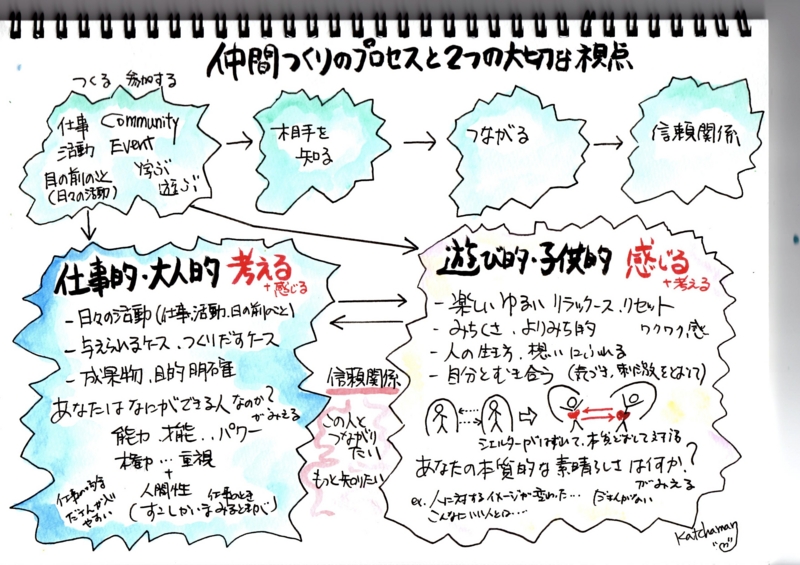 仲間つくりのプロセスと2つの大切な視点
つくる 参加する
仕事 Community
活動 Event
目の前のこと 学ぶ
(日々の活動) 遊ぶ
相手を
知る
つながる
信頼関係
仕事的・大人的 考える
+感じる
-日々の活動(仕事、活動、目の前のこと)
-与えられるケース、つくりだすケース
-成果物、目的明確
あなたはなにができる人なのか?
がみえる
能力 才能、、パワー
権力…重視
+
人間性
信頼関係
この人と
つながり
たい
もっと知りたい
遊び的・子供的 感じる
+考える
-楽しい ゆるい リラックース、リセット
-みちくさ、よりみち的 ワクワク感
-人の生き方、想いにふれる
-自分とむき合う (気づき、刺激をとおして)
シェルターがはずれて、本質と
あなたの本質的な素晴らしさは何か?
がみえる
ex. 人に対するイメージが変わった…
こんなにいい人とは…
Katchaman